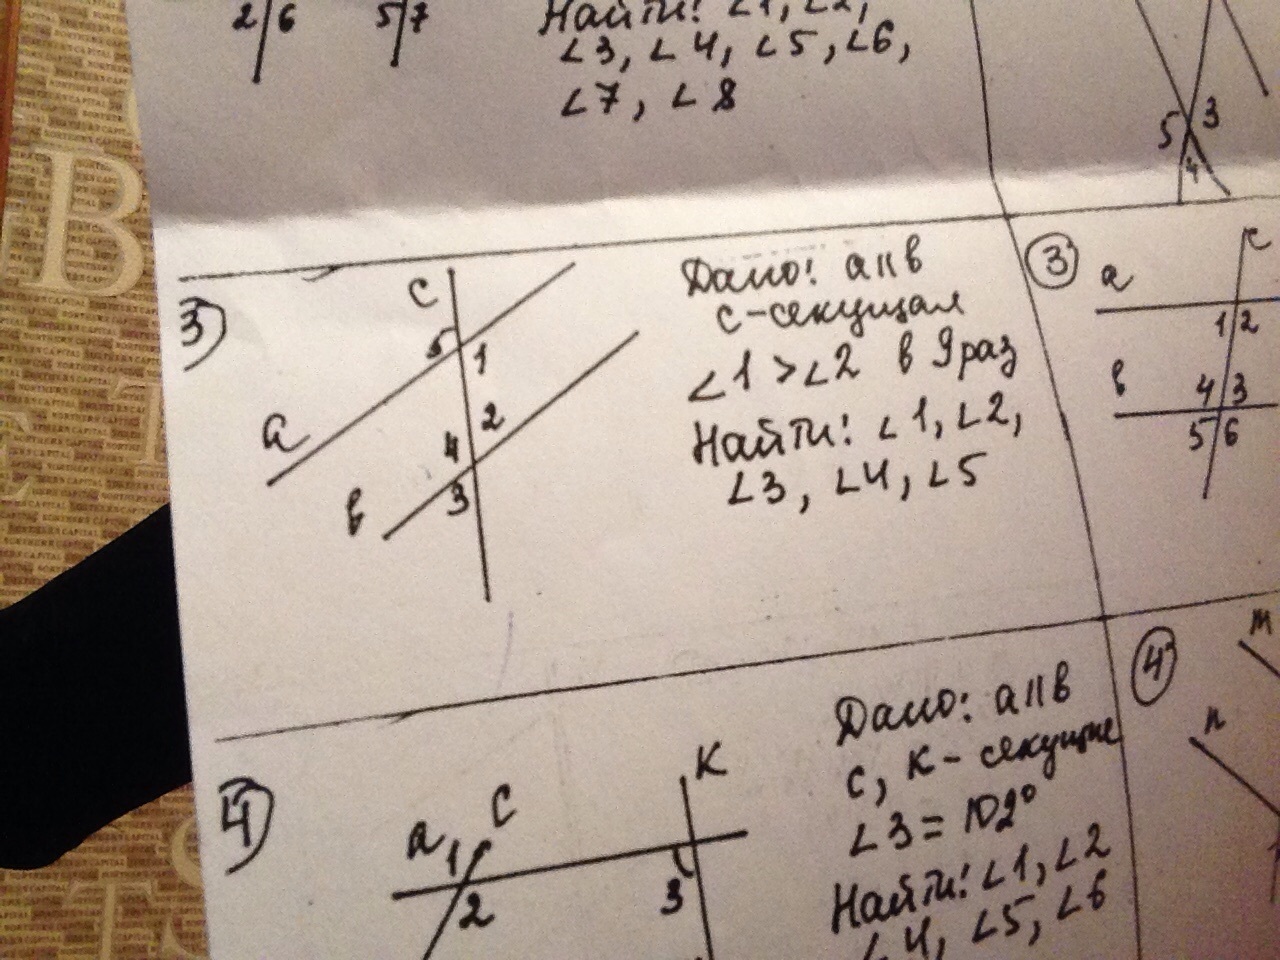 2 6 5 7
Найти: ∠1, ∠2,
∠3, ∠4, ∠5, ∠6,
∠7, ∠8
5 3
4
3)
c
5 1
a
2
4
3
в
Дано: a∥в
c-секущая
∠1 > ∠2 в 9 раз
Найти: ∠1, ∠2,
∠3, ∠4, ∠5
3
c
a
1 2
в
4 3
5 6
4)
a 1 c
2
к
3
Дано: a∥в
c, к - секущие
∠3 = 102°
Найти: ∠1, ∠2
∠4, ∠5, ∠6
4
m
n
B
NORTHERN CAPITAL